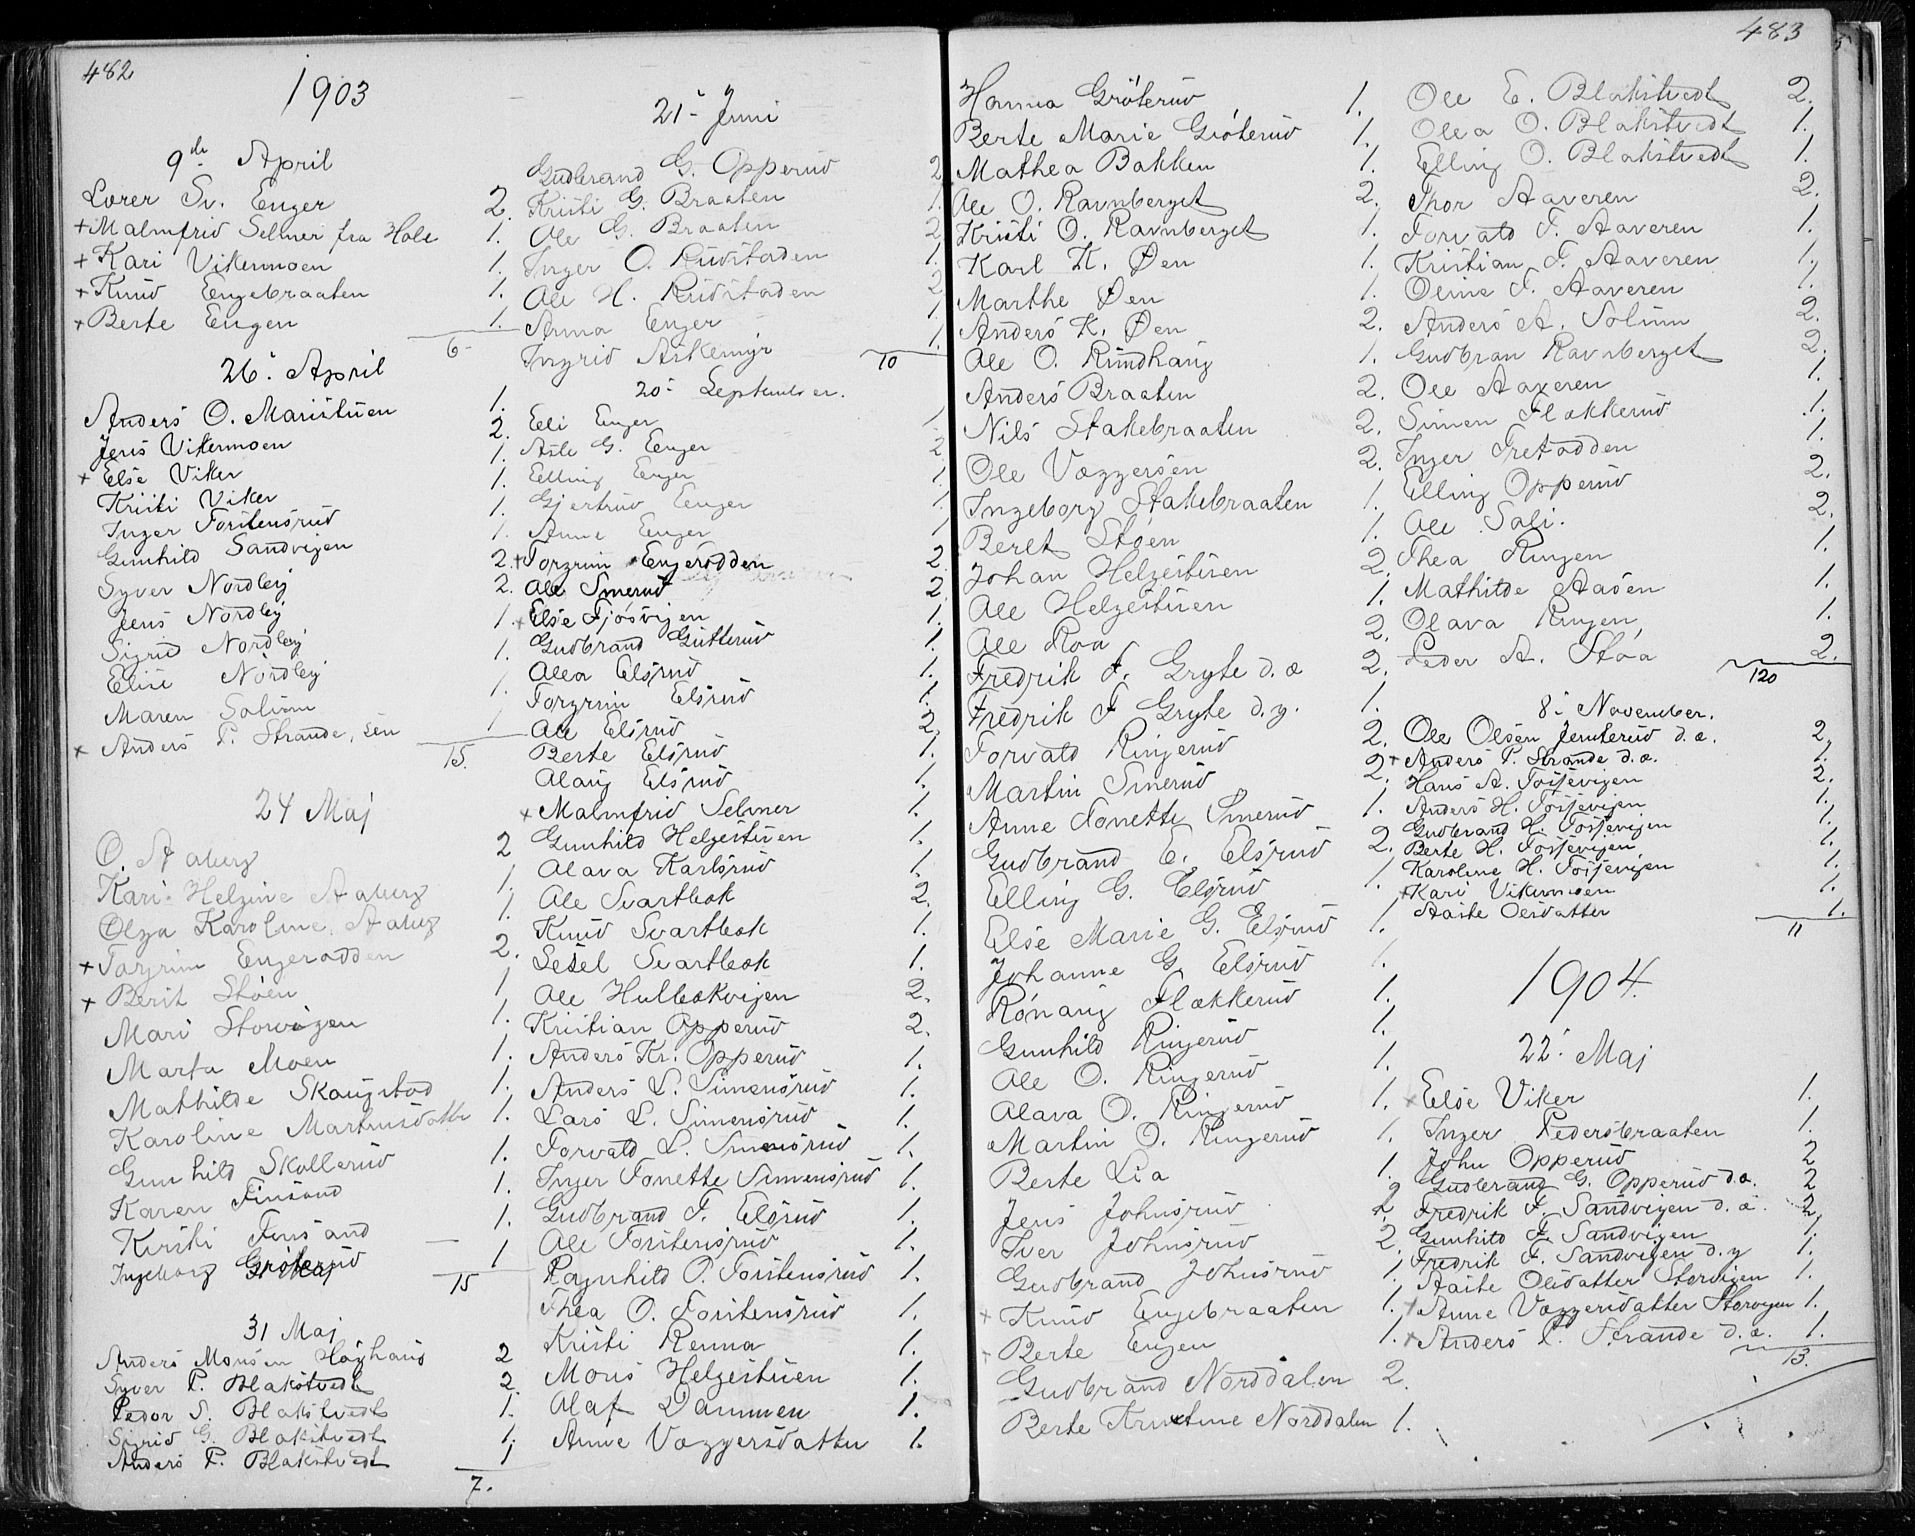 482
1903
9de April
Lærer Sv. Enger 2.
+ Malmfrid Selmer fra Hole 1.
+ Kari Vikermoen 1.
+ Knud Engebraaten 1.
+ Berte Engen 1.
6
26. April
Anders O. Maristuen 1.
Jens Vikermoen 2.
+ Else Viker 1.
Kristi Viker 1.
Inger Forstensrud 1.
Gunhild Sandvigen 1.
Syver Nordby 2.
Jens Nordby 2.
Sigrid Nordby 1.
Elise Nordby 1.
Maren Solum 1
+ Anders P. Strande, sen 1
15.
24 Maj
O. Aaberg 2
Kari Helgine Aaberg 1
Olga Karoline Aaberg 1
+ Torgrim Engerodden 2.
+ Berit Støen 1
Mari Storvigen 1.
Marta Moen 1.
Mathilde Skaugstad 1.
Karoline Martinusdatter 1.
Gunhild Skollerud 1.
Karen Finsand 1.
Kristi Finsand 1.
Ingeborg Grøterud 1
15
31 Maj
Anders Monsen Høghaug 2
Syver P. Blakstvedt 2.
Peder S. Blakstvedt 1.
Sigrid G. Blakstvedt 1.
Anders P. Blakstvedt 1
7.
21. Juni
Gudbrand G. Opperud 2
Kristi G. Braaten 1.
Ole G. Braaten 2
Inger O. Rudstaden 1.
Ole H. Rudstaden 2
Anna Enger 1
Ingrid Askemyr 1.
10
20. September.
Eli Enger 1
Asle G. Enger 2
Elling Enger 1
Gjertrud Enger 1
Anne Enger 1
+ Torgrim Engerodden 2
Ole Smerud 2
+ Else Fjøsvigen 1.
Gudbrand Gutterud 1
Olea Elsrud 1.
Torgrim Elsrud 1.
Ole Elsrud 2
Berte Elsrud 1.
Olaug Elsrud 1.
+ Malmfrid Selmer 1.
Gunhild Helgestuen 1.
Olava Karlsrud 1.
Ole Svartbæk 2.
Knud Svartbæk 1.
Sesel Svartbæk 1.
Ole Hulbækvigen 2.
Kristian Opperud 2.
Anders Kr. Opperud 1.
Anders L. Simensrud 1.
Lars L. Simensrud 1.
Torvald L. Simensrud 1.
Inger Tonette Simensrud 1.
Gudbrand T. Elsrud 1.
Ole Forstensrud 1.
Ragnhild O. Forstensrud 1.
Thea O. Forstensrud 1.
Kristi Renna 1.
Mons Helgestuen 1.
Olaf Dammen 1.
Anne Vaggersdatter 1.
483
Hanna Grøterud 1.
Berte Marie Grøterud 1.
Mathea Bakken 1.
Ole O. Ravnberget 2.
Kristi O. Ravnberget 1.
Karl K. Øen 1.
Marthe Øen 1.
Anders K. Øen 2.
Ole O. Rundhaug 1.
Anders Braaten 2.
Nils Stakebraaten 2.
Ole Vaggersen 2.
Ingeborg Stakebraaten 1.
Beret Støen 1.
Johan Helgestuen 2.
Ole Helgestuen 1.
Ole Roa 2.
Fredrik F. Gryte d.æ 2.
Fredrik F Gryte d.y. 1.
Torvald Ringerud 2.
Martin Smerud 2.
Anne Tonette Smerud 1.
Gudbrand E. Elsrud 2.
Elling G. Elsrud 1
Else Marie G. Elsrud 1.
Johanne G. Elsrud 1.
Rønaug Flækkerud 1.
Gunhild Ringerud 1.
Ole O. Ringerud 1.
Olava O. Ringerud 1.
Martin O. Ringerud 1.
Berte Lia 1.
Jens Johnsrud 2
Iver Johnsrud 2.
Gudbrand Johnsrud 1
+ Knud Engebraaten 1.
+ Berte Engen 1.
Gudbrand Norddalen 2.
Berte Kristine Norddalen 1.
Ole E. Blakstvedt 2.
Olea O. Blakstvedt 1.
Elling O. Blakstvedt 1.
Thor Aaveren 2.
Torvald T. Aaveren 1.
Kristian T. Aaveren 1.
Oline T. Aaveren 1.
Anders A. Solum 2.
Gudbran Ravnberget 2.
Ole Aaveren 1.
Simen Flækkerud 1.
Inger Tretodden 1.
Elling Opperud 2.
Ole Sali. 2.
Thea Ringen 1.
Mathilde Aasen 1.
Olava Ringen 1.
Peder A. Støa 2.
120
8. November.
Ole Olsen Jenterud d.æ. 2.
+ Anders P. Strande d.æ. 1.
Hans A. Tossevigen 2.
Anders H. Tossevigen 1.
Gudbrand H. Tossevigen 1.
Berte H. Tossevigen 1.
Karoline H. Tossevigen 1.
+ Kari Vikermoen 1.
Aaste Olsdatter 1.
11
1904.
22. Maj
+ Else Viker 1.
Inger Pedersbraaten 1.
John Opperud 2
Gudbrand G. Opperud d.æ. 2
Fredrik F. Sandvigen d.æ. 2
Gunhild F. Sandvigen 1.
Fredrik F. Sandvigen d.y 1.
Aaste Olsdatter Storvigen 1.
Anne Vaggersdatter Storvigen 1.
+ Anders P. Strande d.æ. 1.
13.